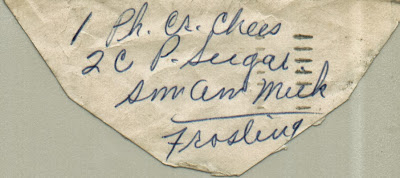 1 Ph. Cr. Chees
2 C P. Sugar.
Sm Am Milk
Frosting